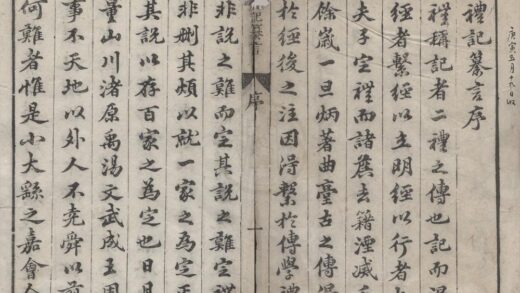 庚寅五月十九日收
禮記纂言序
禮稱記者二禮之傳也記而混
經者繫經以立明經以行者
夫子定禮而諸矦去籍湮滅千
餘歲一旦炳著曲臺古之傳
於經後之注因淂繫於傳學禮
纂言 序 一
非說之難而定其說之難定禮
非刪其煩以就一家之為定
其說以存百家之為定也日月
量山川渚原禹湯文武成王周
事不天地以外人不堯舜以前
何難者惟是小大繇之嘉會人